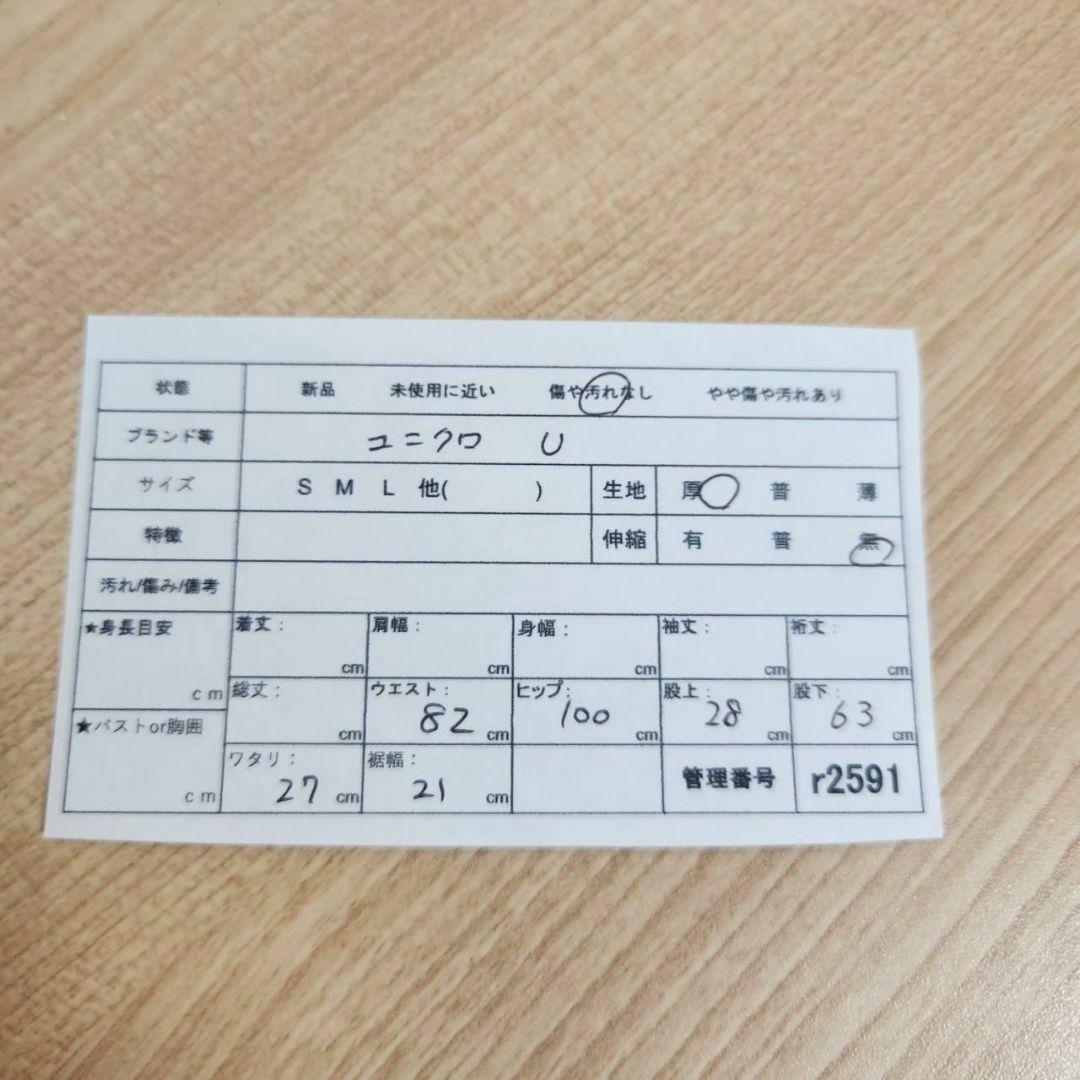 状態 新品 未使用に近い 傷や汚れなし やや傷や汚れあり
ブランド等 ユニクロ U
サイズ S M L 他( ) 生地 厚 普 薄
特徴 伸縮 有 普 無
汚れ/傷み/備考
★身長目安 cm
着丈: cm 肩幅: cm 身幅: cm 袖丈: cm 裄丈: cm
総丈: cm ウエスト: 82 cm ヒップ: 100 cm 股上: 28 cm 股下: 63 cm
★バストor胸囲 cm
ワタリ: 27 cm 裾幅: 21 cm 管理番号 r2591